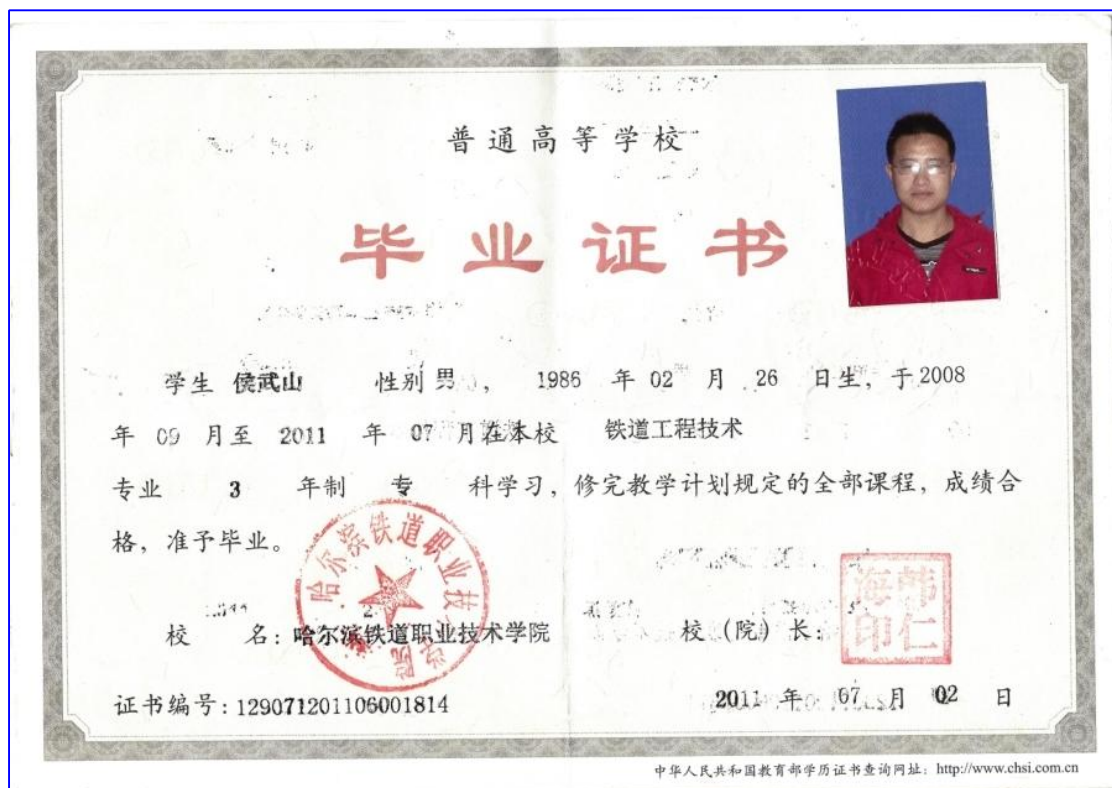 普通高等学校
毕业证书
学生 侯武山 性别 男 ， 1986 年 02 月 26 日生，于 2008
年 09 月至 2011 年 07 月在本校 铁道工程技术
专业 3 年制 专 科学习，修完教学计划规定的全部课程，成绩合
格，准予毕业。
哈尔滨铁道职业技术学院
韩仁海印
校 名：哈尔滨铁道职业技术学院 校（院）长：
证书编号：129071201106001814 2011 年 07 月 02 日
中华人民共和国教育部学历证书查询网址：http://www.chsi.com.cn